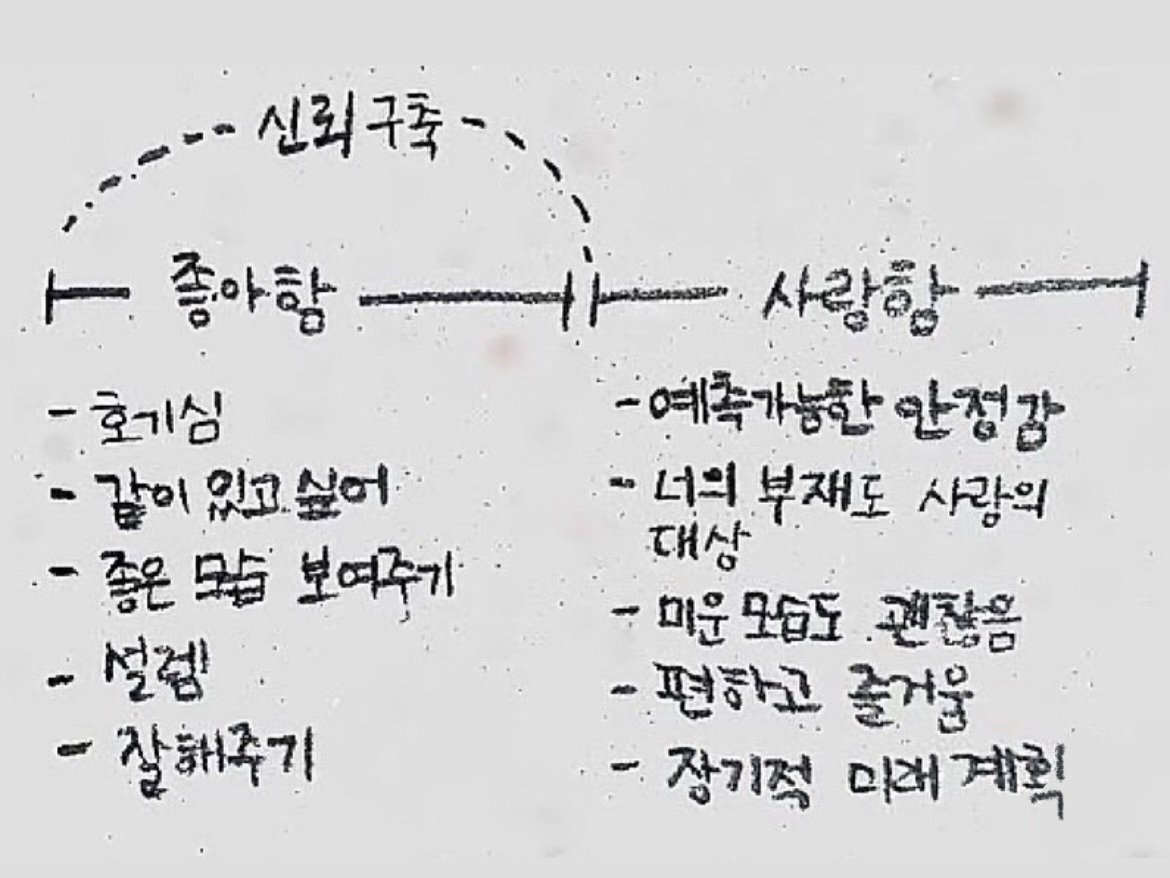 신뢰구축
좋아함
- 호기심
- 같이 있고 싶어
- 좋은 모습 보여주기
- 설렘
- 잘해주기
사랑함
- 예측가능한 안정감
- 너의 부재도 사랑의
대상
- 미운 모습도 괜찮음
- 편하고 즐거움
- 장기적 미래 계획